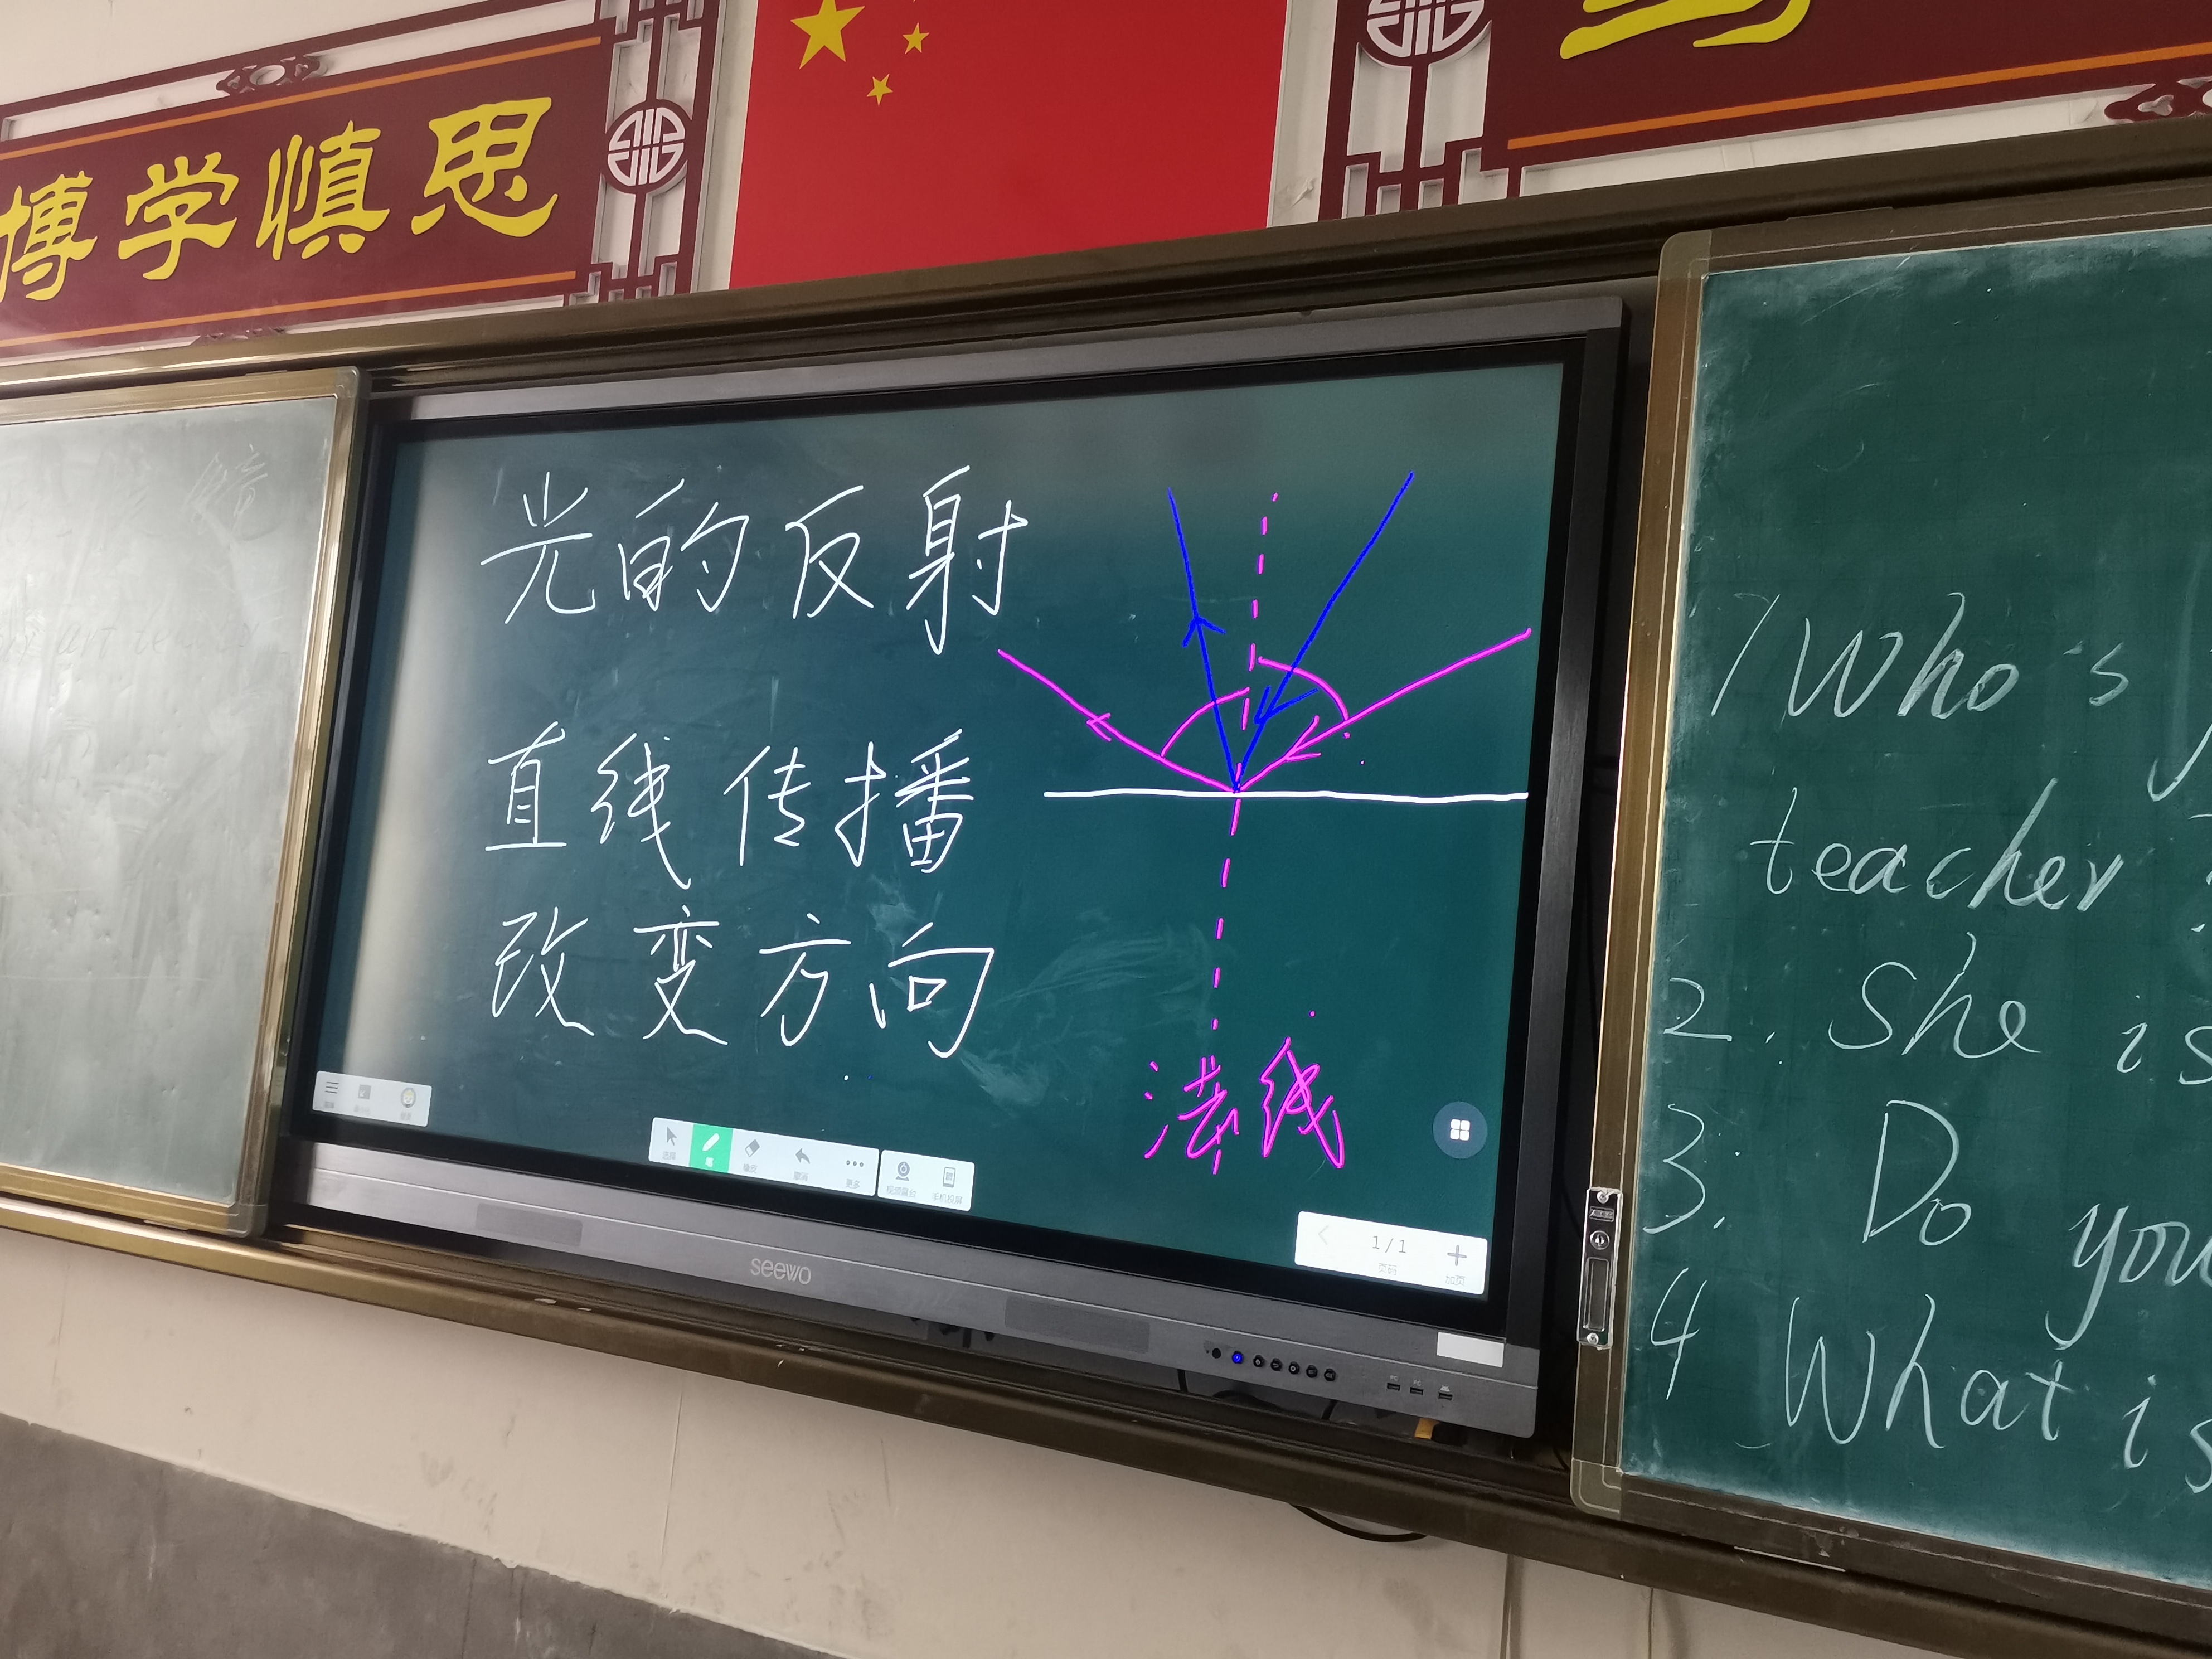 博学慎思
光的反射
直线传播
改变方向
法线
选择 笔 橡皮 撤消 更多
1/1
页码 加页
seewo
1 Who's
teacher
2. She is
3. Do you
4 What is